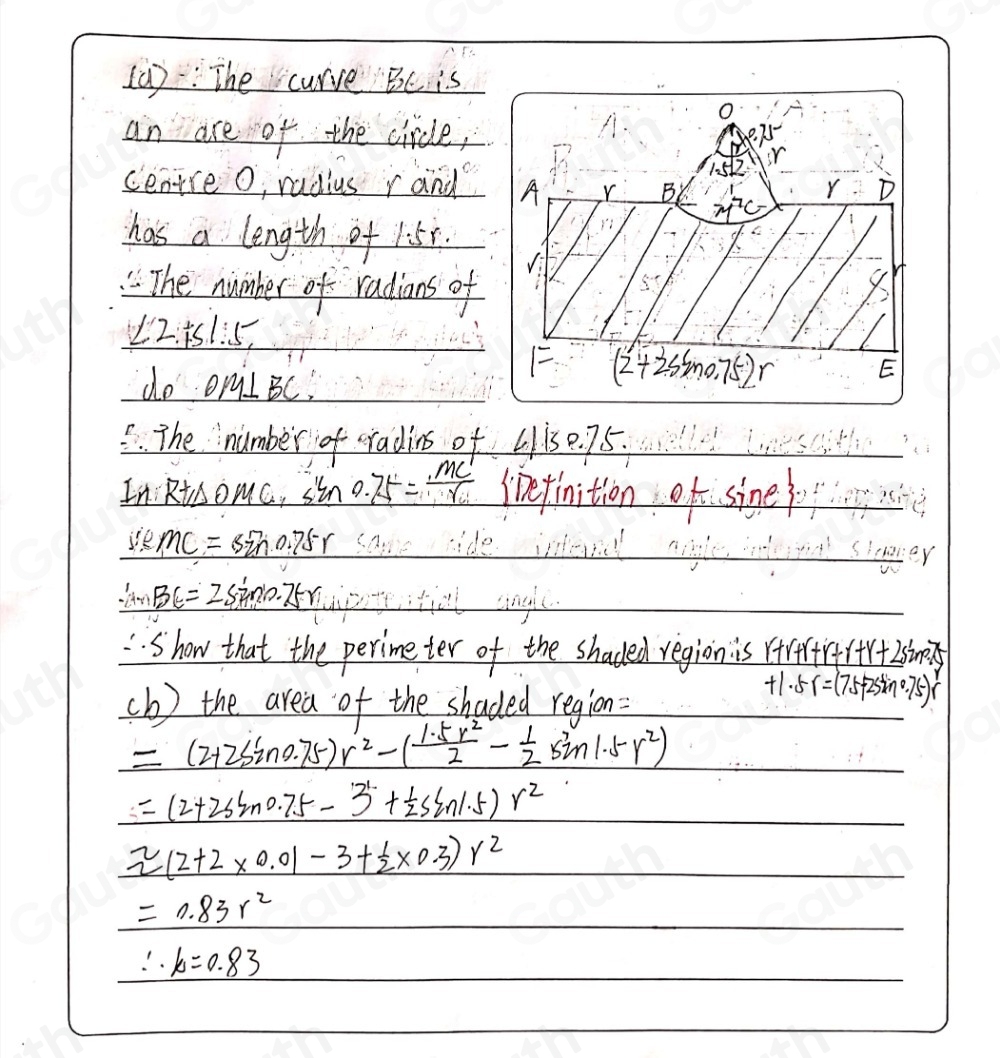 (a) ∵ The curve BC is
an are of the circle,
centre O, radius r and
has a length of 1.5r.
∴ The number of radians of
∠2 is 1.5.
do OM⊥BC.
∴ The number of radins of ∠1 is 0.75.
In Rt△OMC, sin 0.75 = MC/r {Definition of sine}
MC = sin 0.75r
BC = 2sin0.75r
∴ Show that the perimeter of the shaded region is r+r+r+r+r+r+2sin0.75
+1.5r=(7.5+2sin0.75)r
cb) the area of the shaded region=
= (2+2sin0.75)r² - (1.5r²/2 - 1/2 sin1.5r²)
= (2+2sin0.75 - 3 + 1/2 sin1.5) r²
≈ (2+2×0.01 - 3 + 1/2 × 0.3) r²
= 0.83 r²
∴ k=0.83
O
0.75
r
1.5
2
A
r
B
M
C
r
D
r
r
F
(2+2sin0.75)r
E
Gauth